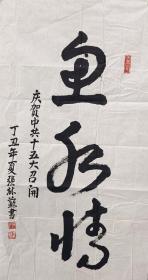 鱼水情
庆贺中共十五大召开
丁丑年夏张林苏书